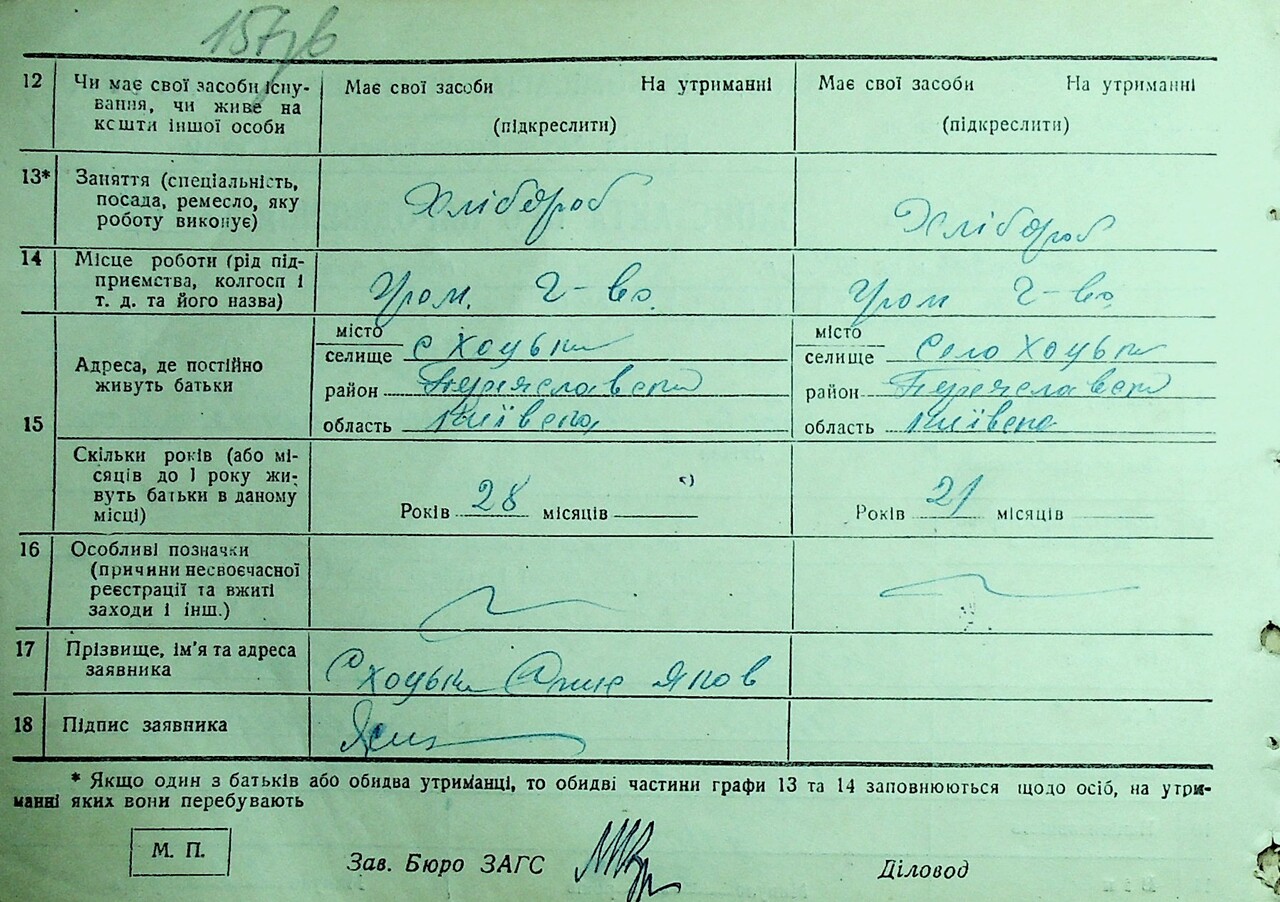 157зв
12 Чи має свої засоби існу- Має свої засоби На утриманні Має свої засоби На утриманні
вання, чи живе на
кошти іншої особи (підкреслити) (підкреслити)
13* Заняття (спеціальність,
посада, ремесло, яку Хлібороб
роботу виконує) Хлібороб
14 Місце роботи (рід під-
приємства, колгосп і
т. д. та його назва) Гром. г-во. Гром г-во.
місто місто
15 Адреса, де постійно селище с Хоцьки селище Село Хоцьки
живуть батьки район Переяславськ район Переяславськ
область Київська область Київська
Скільки років (або мі-
сяців до 1 року жи-
вуть батьки в даному
місці) Років 28 місяців Років 21 місяців
16 Особливі позначки
(причини несвоєчасної
реєстрації та вжиті
заходи і інш.)
17 Прізвище, ім'я та адреса
заявника с Хоцьки Яков
18 Підпис заявника
* Якщо один з батьків або обидва утриманці, то обидві частини графи 13 та 14 заповнюються щодо осіб, на утри-
манні яких вони перебувають
М. П.
Зав. Бюро ЗАГС Діловод